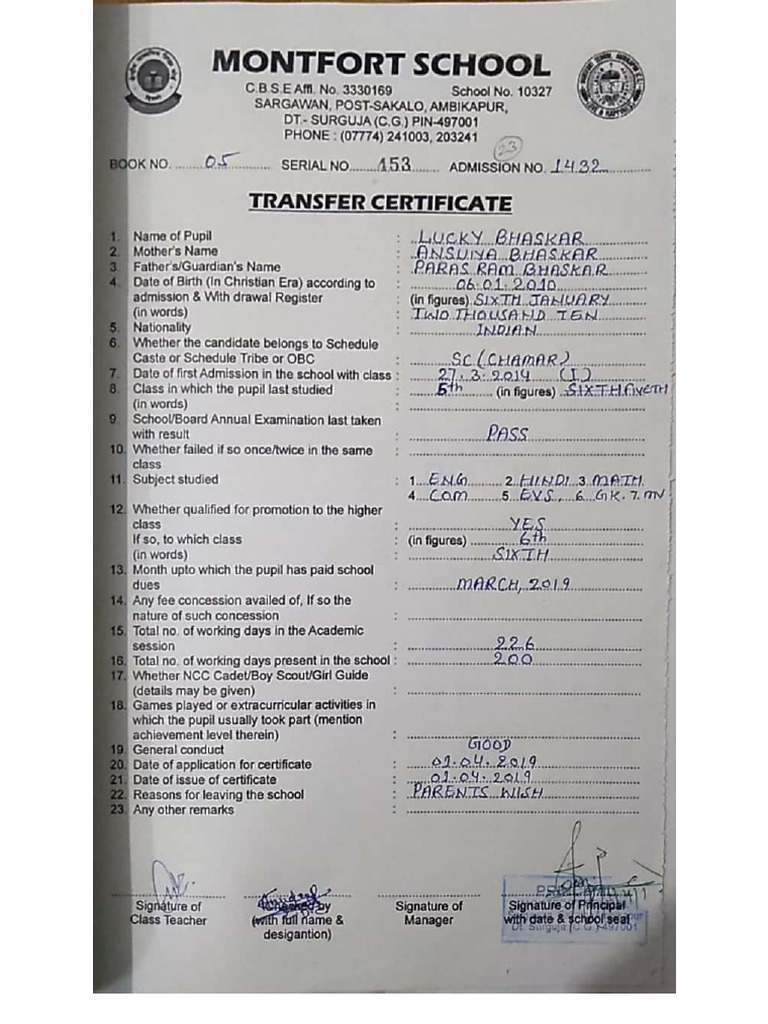 MONTFORT SCHOOL
C.B.S.E Affl. No. 3330169 School No. 10327
SARGAWAN, POST-SAKALO, AMBIKAPUR,
DT.- SURGUJA (C.G.) PIN-497001
PHONE : (07774) 241003, 203241
23
BOOK NO. 05 SERIAL NO. 153 ADMISSION NO. 1432
TRANSFER CERTIFICATE
1. Name of Pupil : LUCKY BHASKAR
2. Mother's Name : ANSUIYA BHASKAR
3. Father's/Guardian's Name : PARAS RAM BHASKAR
4. Date of Birth (In Christian Era) according to : 06.01.2010
admission & With drawal Register (in figures) SIXTH JANUARY
(in words) : TWO THOUSAND TEN
5. Nationality : INDIAN
6. Whether the candidate belongs to Schedule
Caste or Schedule Tribe or OBC : SC (CHAMAR)
7. Date of first Admission in the school with class : 27.3.2014 (I)
8. Class in which the pupil last studied : 5th (in figures)
(in words) :
9. School/Board Annual Examination last taken
with result : PASS
10. Whether failed if so once/twice in the same :
class
11. Subject studied : 1. ENG 2. HINDI 3. MATH
4. COM 5. EVS, 6. GK. 7. MV
12. Whether qualified for promotion to the higher
class : YES
If so, to which class (in figures) 6th
(in words) : SIXTH
13. Month upto which the pupil has paid school
dues : MARCH, 2019
14. Any fee concession availed of, If so the
nature of such concession :
15. Total no. of working days in the Academic
session : 226
16. Total no. of working days present in the school : 200
17. Whether NCC Cadet/Boy Scout/Girl Guide
(details may be given) :
18. Games played or extracurricular activities in
which the pupil usually took part (mention
achievement level therein) :
19. General conduct : GOOD
20. Date of application for certificate : 01.04.2019
21. Date of issue of certificate : 01.04.2019
22. Reasons for leaving the school : PARENTS WISH
23. Any other remarks :
Signature of Class Teacher
Checked by (with full name & desigantion)
Signature of Manager
Signature of Principal with date & school seal
Dt. Surguja (C.G.) 497001